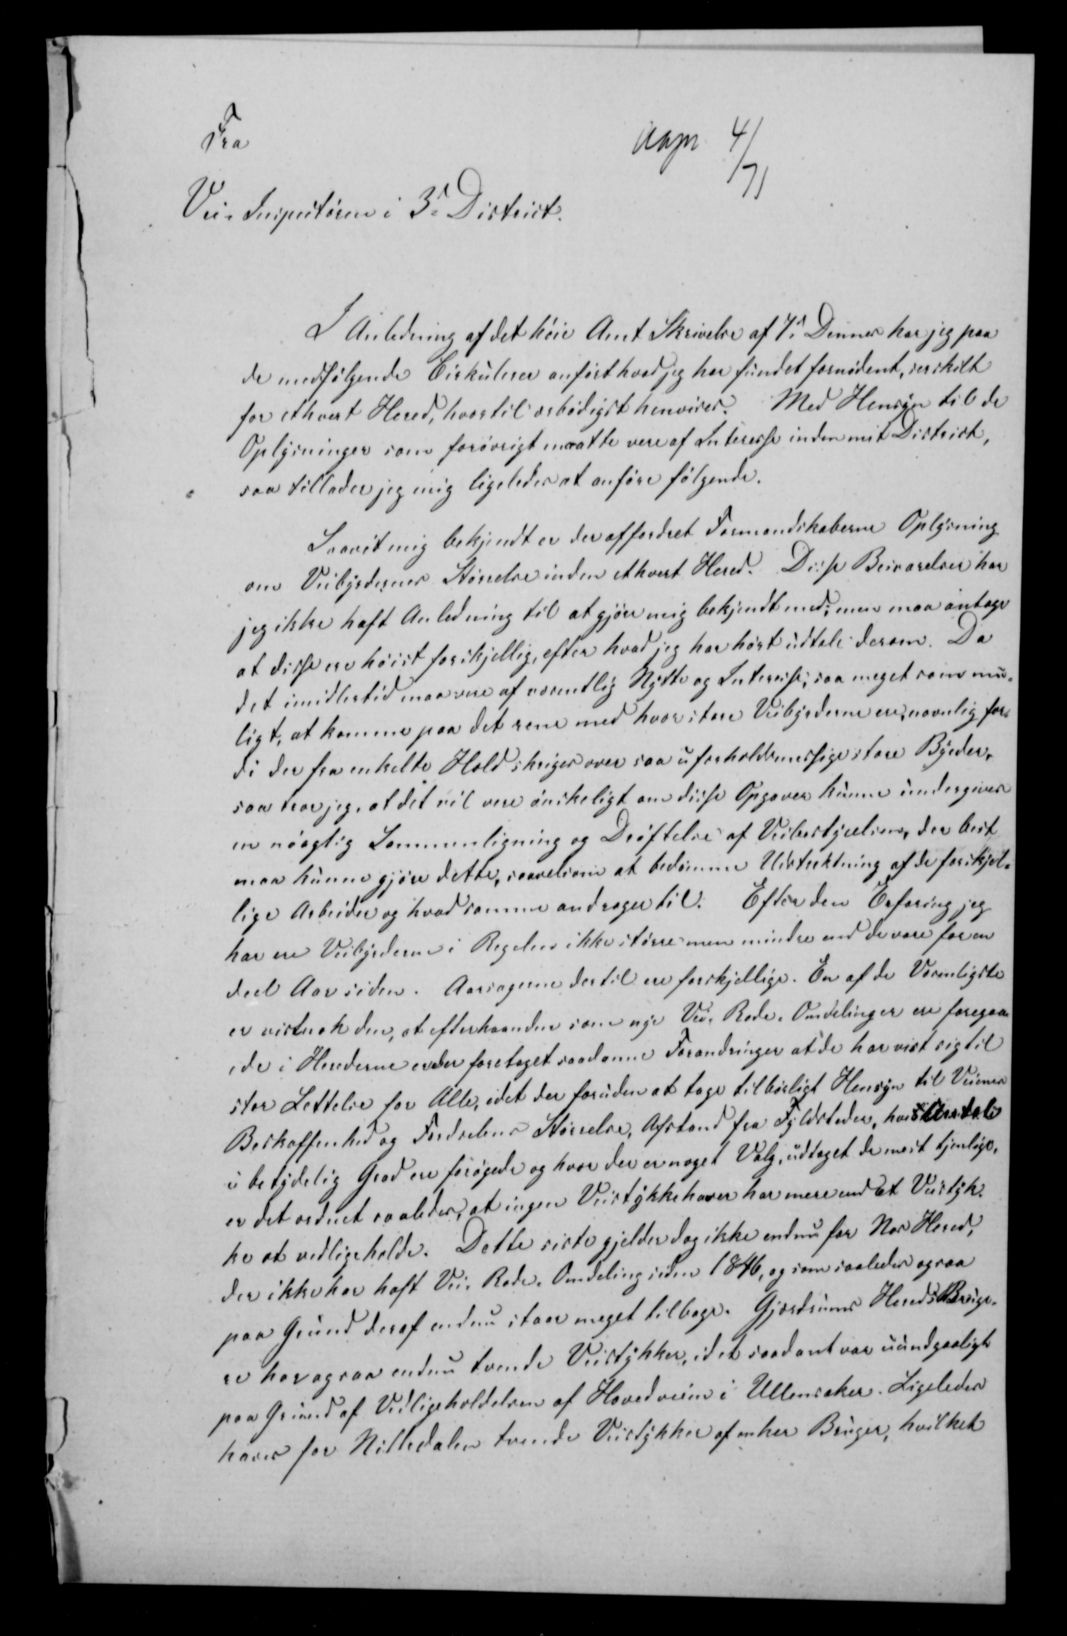 Fra
4/71
Vei-Inspektören i 3d District.
I Anledning af det höie Amt Skrivelse af 7d Dennes har jeg paa
de medfölgende Cirkulerer anfört hvad jeg har fundet fornödent, serskilt
for ethvert Hered, hvortil erbödigst henvises. Med Hensyn til de
Oplysninger som forövrigt maatte vere af Interesse inden mit District,
saa tillader jeg mig ligeledes at anföre fölgende.
Saavit mig bekjendt er der affordret Formandskaberne Oplysning
om Veibyrdernes Störrelse inden ethvert Hered. Disse Besvarelser har
jeg ikke haft Anledning til at gjöre mig bekjendt med, men maa antage
at disse ere höist forskjellig, efter hvad jeg har hört udtale derom. Da
det imidlertid maa vere af vesentlig Nytte og Interesse, saa meget som mu-
ligt, at komme paa det rene med hvor store Veibyrderne ere, navnlig for-
di der fra enkelte Hold skriges over saa uforholdsmessige store Byrder,
saa tror jeg, at det vil vere önskeligt om disse Opgaver kunne undergives
en nöagtig Sammenligning og Dröftelse af Veibestyrelsen, der best
maa kunne gjöre dette, saavelsom at bedömme Udstrektning af de forskjel-
lige Arbeider og hvad samme andrager til. Efter den Erfaring jeg
har ere Veibyrderne i Regelen ikke större men mindre end de vare for en
deel Aar siden. Aarsagerne dertil ere forskjellige. En af de Vesenligste
er vistnok den, at efterhaanden som nye Vei-Rode-Omdelinger ere foregaa
ede i Herederne er der foretaget saadanne Forandringer at de har vist sig til
stor Lettelse for Alle, idet der foruden at tage tilbörligt Hensyn til Veienes
Beskaffenhed og Ferdselens Störrelse, Afstand fra Fyldsteder, hvis Antal
i betydelig Grad ere forögede og hvor der er noget Valg, udtaget de mest tjenlige,
er det ordnet saaledes, at ingen Veistykkehaver har mere end et Veistyk-
ke at vedligeholde. Dette siste gjelder dog ikke endnu for Nes Hered,
der ikke har haft Vei-Rode-Omdeling siden 1846, og som saaledes ogsaa
paa Grund deraf endnu staar meget tilbage. Gjerdrums Hereds Bruge-
re har ogsaa endnu tvende Veistykker, idet saadant var uundgaaligt
paa Grund af Vedligeholdelsen af Hovedveien i Ullensaker. Ligeledes
haves for Nittedalen tvende Veistykker af enher Bruger, hvilket